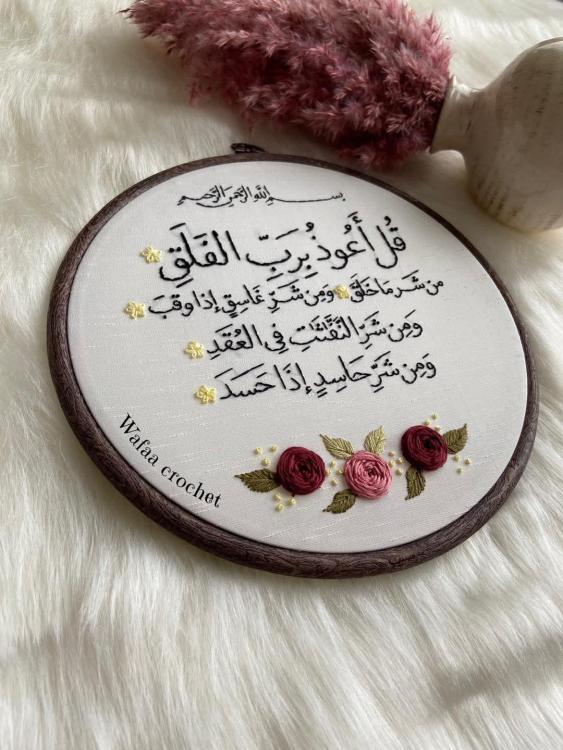 بسم الله الرحمن الرحيم
قُل أَعُوذُ بِرَبِّ الفَلَقِ
من شَر مَا خَلَقَ ومِن شَرِّ غَاسِقٍ إذا وقَبَ
وَمِن شَرِّ النَّفَّثَتِ فِي العُقَدِ
وَمِن شَرِّ حَاسِدٍ إِذَا حَسَدَ
Wafaa crochet